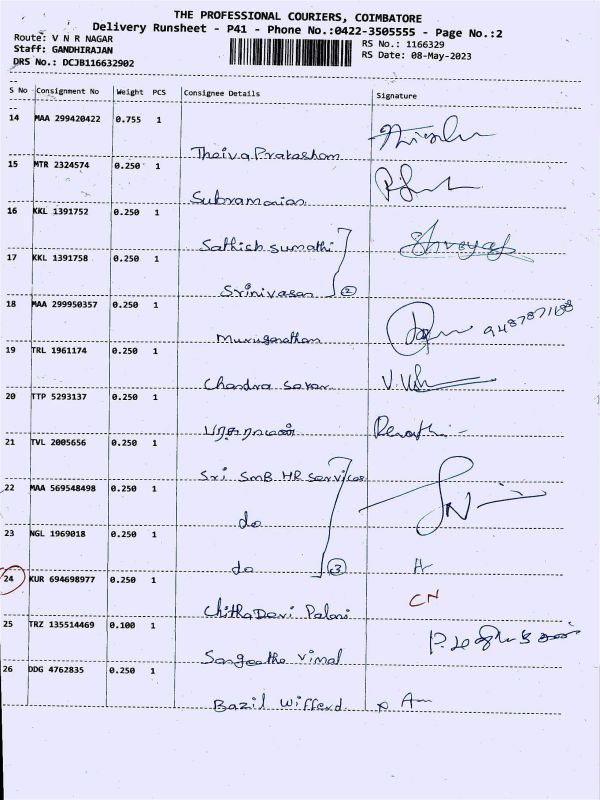 THE PROFESSIONAL COURIERS, COIMBATORE
Delivery Runsheet - P41 - Phone No.:0422-3505555 - Page No.:2
Route: V N R NAGAR
RS No.: 1166329
Staff: GANDHIRAJAN
RS Date: 08-May-2023
DRS No.: DCJB116632902
S No Consignment No Weight PCS Consignee Details Signature
14 MAA 299420422 0.755 1
Theiva Prakasham
15 MTR 2324574 0.250 1
Subramanian
16 KKL 1391752 0.250 1
Sathish sumathi Shreyas
17 KKL 1391758 0.250 1
Srinivasan 2
18 MAA 299950357 0.250 1
Muruganathan
19 TRL 1961174 0.250 1
Chandra Sekar
20 TTP 5293137 0.250 1
Revathi
21 TVL 2005656 0.250 1
Sri SMB HR Services
22 MAA 569548498 0.250 1
do
23 NGL 1969018 0.250 1
do 3
24 KUR 694698977 0.250 1 CN
Chitha Devi Palani
25 TRZ 135514469 0.100 1
Sangeetha Vimal
26 DDG 4762835 0.250 1
Bazil Wifferd